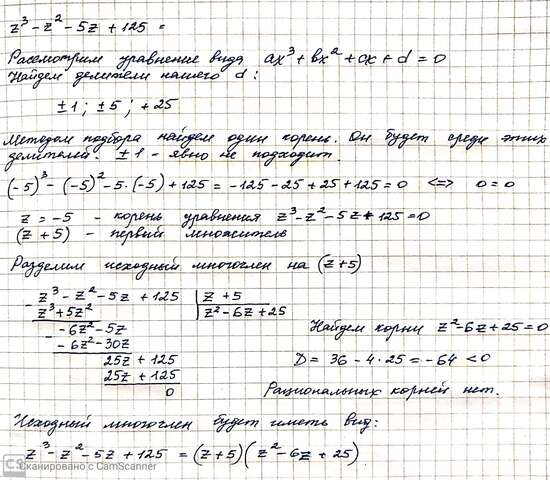 z³ - z² - 5z + 125 =
Рассмотрим уравнение вида ax³ + bx² + cx + d = 0
Найдем делители нашего d:
±1; ±5; +25
Методом подбора найдем один корень. Он будет среди этих
делителей. ±1 - явно не подходит.
(-5)³ - (-5)² - 5·(-5) + 125 = -125 - 25 + 25 + 125 = 0 <=> 0 = 0
z = -5 - корень уравнения z³ - z² - 5z + 125 = 0
(z + 5) - первый множитель
Разделим исходный многочлен на (z+5)
- z³ - z² - 5z + 125 | z + 5
z³ + 5z² | z² - 6z + 25
- -6z² - 5z
-6z² - 30z
25z + 125
25z + 125
0
Найдем корни z² - 6z + 25 = 0
D = 36 - 4·25 = -64 < 0
Рациональных корней нет.
Исходный многочлен будет иметь вид:
z³ - z² - 5z + 125 = (z+5)(z² - 6z + 25)
CS Сканировано с CamScanner